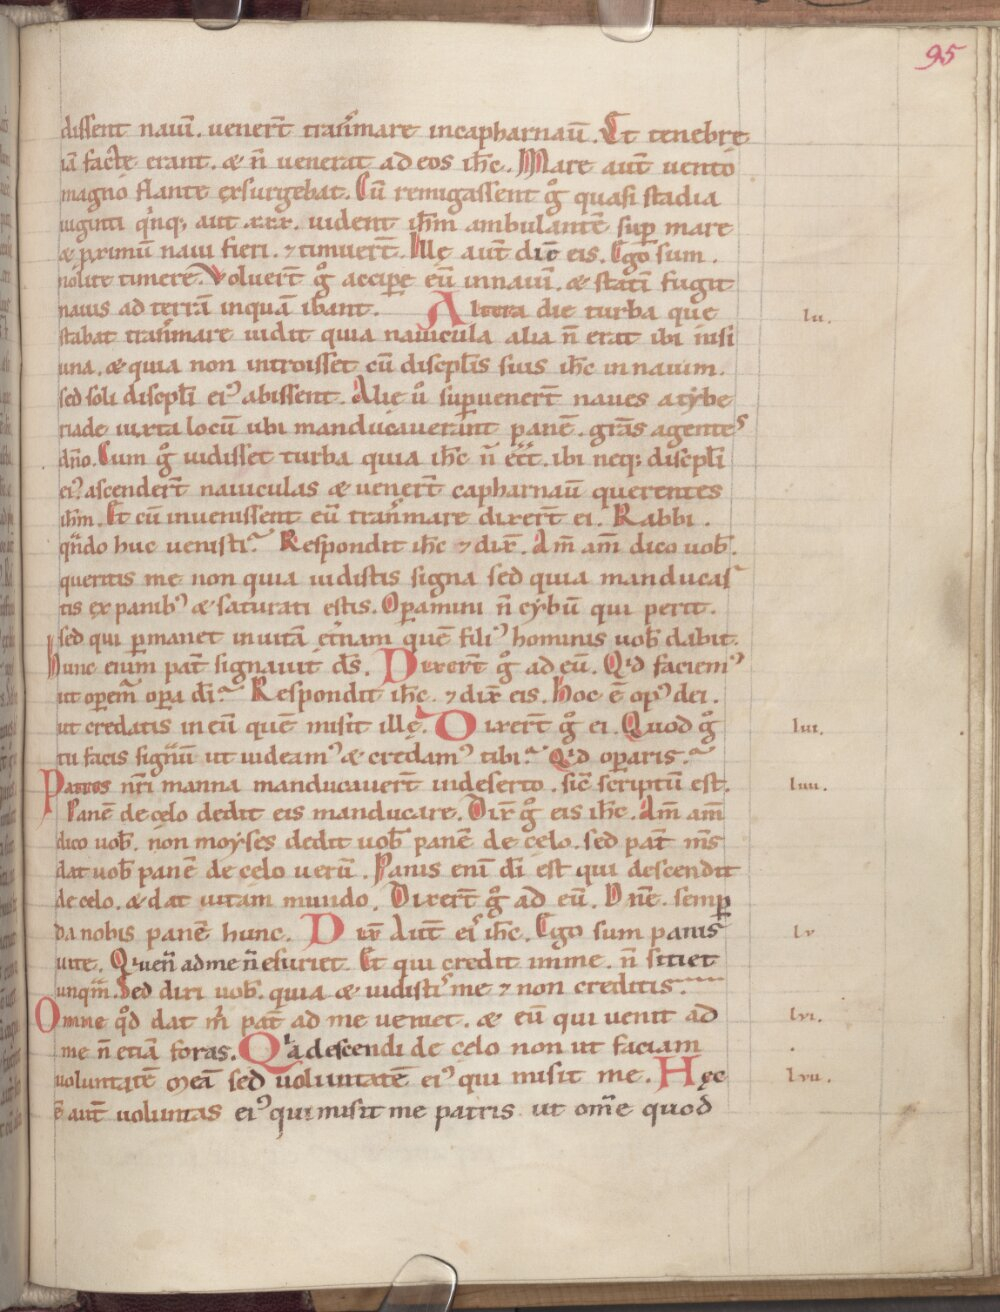 95
dissent nauī. venert̄ trans̄mare incapharnaū. Et tenebre
iā facte erant. & n̄ venerat ad eos ih̄c. Mare aut̄ vento
magno flante exsurgebat. Cū remigassent g̊ quasi stadia
uiginti qͥnq; aut .xxx. uident ih̄m ambulantē sup̄ mare
& p̲ximū naui fieri. ⁊ timuert̄. Ille aut̄ dic̄ eis. Ego sum.
nolite timere. Voluert̄ g̊ accip̲e eū innauī. & statī fugit
nauis ad terrā inquā ibant. Altera die turba que lii.
stabat trans̄mare uidit quia nauicula alia n̄ erat ibi nisi
una. & quia non introisset cū discip̄lis suis ih̄c in nauim.
sed soli discipl̄i eiꝰ abissent. Alię ů sup̲venert̄ naues a tybe
riade iuxta locū ubi manducauerunt panē. gr̄as agentes
dn̄o. Cum g̊ uidisset turba quia ih̄c n̄ eēt. ibi neq; discipl̄i
eiꝰ ascendert̄ nauiculas & venert̄ capharnaū querentes
ih̄m. Et cū invenissent eū trans̄mare dixert̄ ei. Rabbi.
qn̄do huc uenisti? Respondit ih̄c ⁊ dix̄. Am̄ am̄ dico uob̄.
queritis me non quia uidistis signa sed quia manducas
tis ex panibꝰ & saturati estis. Operamini n̄ cybū qui perit.
sed qui p̲manet inuitā et̄nam quē filiꝰ hominis uob̄ dabit.
hunc enim pat̄ signauit d̄s. Dixert̄ g̊ ad eū. Qͥd faciemꝰ
ut op̲em̄ op̲a dī? Respondit ih̄c. ⁊ dix̄ eis. Hoc ē opꝰ dei.
ut credatis in eū quē misit ille. Dixert̄ g̊ ei. Quod g̊ liii.
tu facis signū ut uideamꝰ & credamꝰ tibi? Qͥd operaris?
Patres nr̄i manna manducauert̄ indeserto. sic̄ scriptū est. liiii.
Panē de celo dedit eis manducare. Dix̄ g̊ eis ih̄c. Am̄ am̄
dico uob̄. non moyses dedit uob̄ panē de celo. sed pat̄ m̄s
dat uob̄ panē de celo verū. Panis enī dī est qui descendit
de celo. & dat uitam mundo. Dixert̄ g̊ ad eū. Dn̄e. semp̲
da nobis panē hunc. Dix̄ Aut̄ eis ih̄c. Ego sum panis lv
uite. Qͥ uen̄ ad me n̄ esuriet. Et qui credit inme. n̄ sitiet
unqm̄. Sed dixi uob̄. quia & uidistis me ⁊ non creditis.
Omne qd̊ dat m̄ pat̄ ad me veniet. & eū qui venit ad lvi.
me n̄ eiciā foras. Qͥa descendi de celo non ut faciam
voluntatē meā sed voluntatē eiꝰ qui misit me. Hęc lvii.
ē aut̄ voluntas eiꝰ qui misit me patris. ut om̄e quod